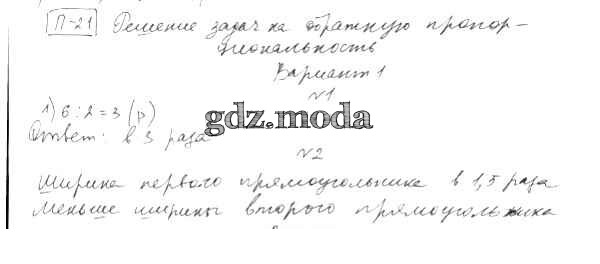 П-21 Решение задач на обратную пропор-
циональность
Вариант 1
№1
1) 6 : 2 = 3 (р)
Ответ: в 3 раза
gdz.moda
№2
Ширина первого прямоугольника в 1,5 раза
меньше ширины второго прямоугольника